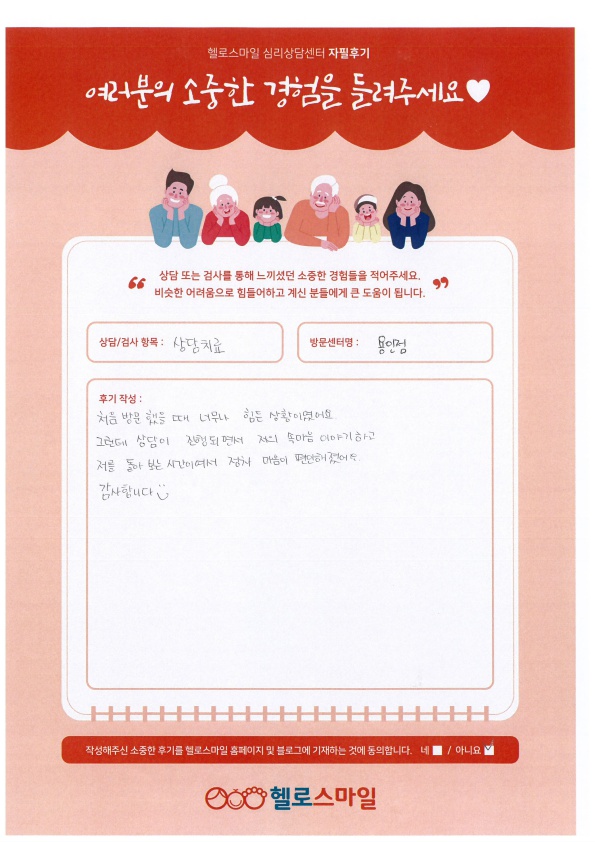 헬로스마일 심리상담센터 자필후기
여러분의 소중한 경험을 들려주세요
상담 또는 검사를 통해 느끼셨던 소중한 경험들을 적어주세요.
비슷한 어려움으로 힘들어하고 계신 분들에게 큰 도움이 됩니다.
상담/검사 항목 : 상담치료
방문센터명 : 용인점
후기 작성 :
처음 방문 했을 때 너무나 힘든 상황이였어요
그런데 상담이 진행되면서 저의 속마음 이야기하고
저를 돌아 보는 시간이여서 점차 마음이 편안해졌어요.
감사합니다
작성해주신 소중한 후기를 헬로스마일 홈페이지 및 블로그에 기재하는 것에 동의합니다. 네 / 아니요
헬로스마일